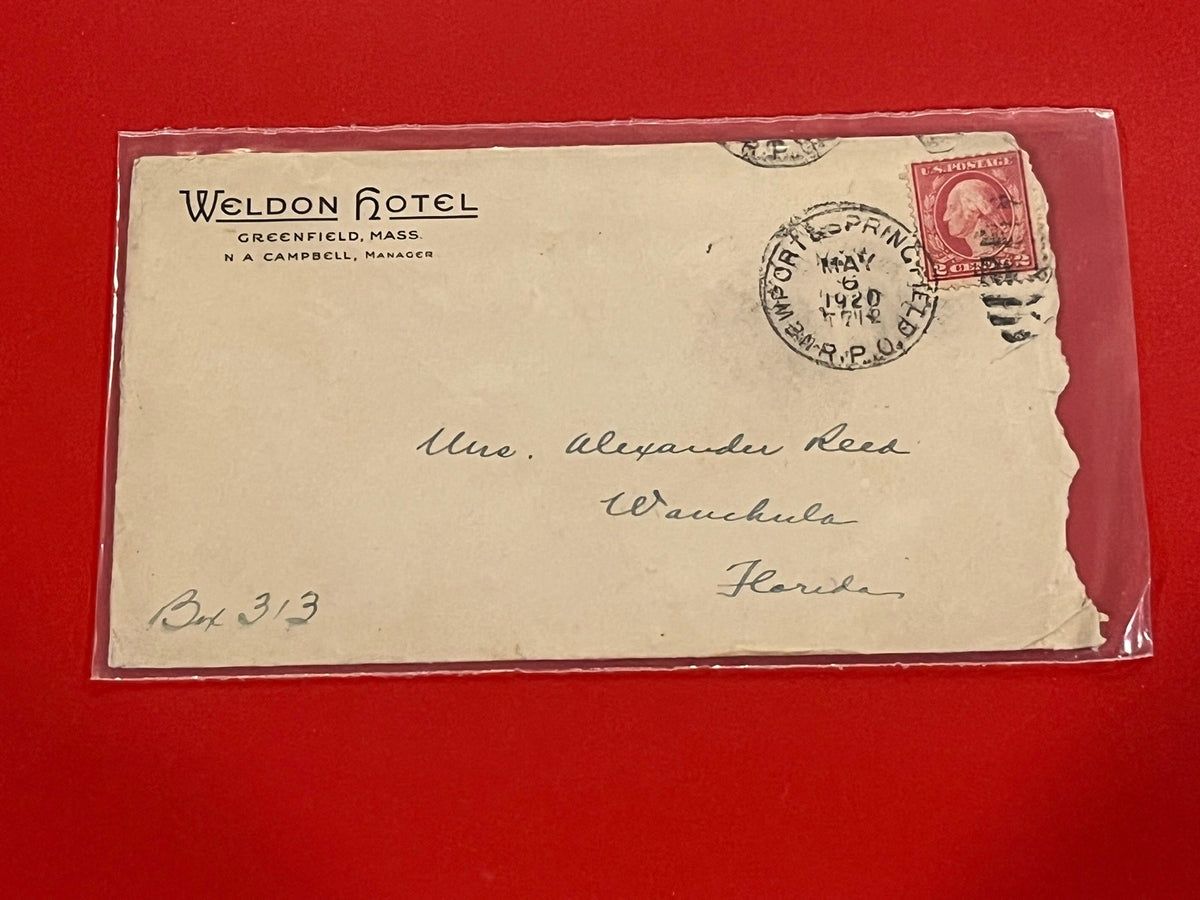 WELDON HOTEL
GREENFIELD, MASS.
N A CAMPBELL, MANAGER
R.P.O.
U.S. POSTAGE
2 CENTS 2
NEWPORT & SPRINGFIELD.
MAY
6
1920
R.P.O.
Mrs. Alexander Reed
Wauchula
Florida
Box 313